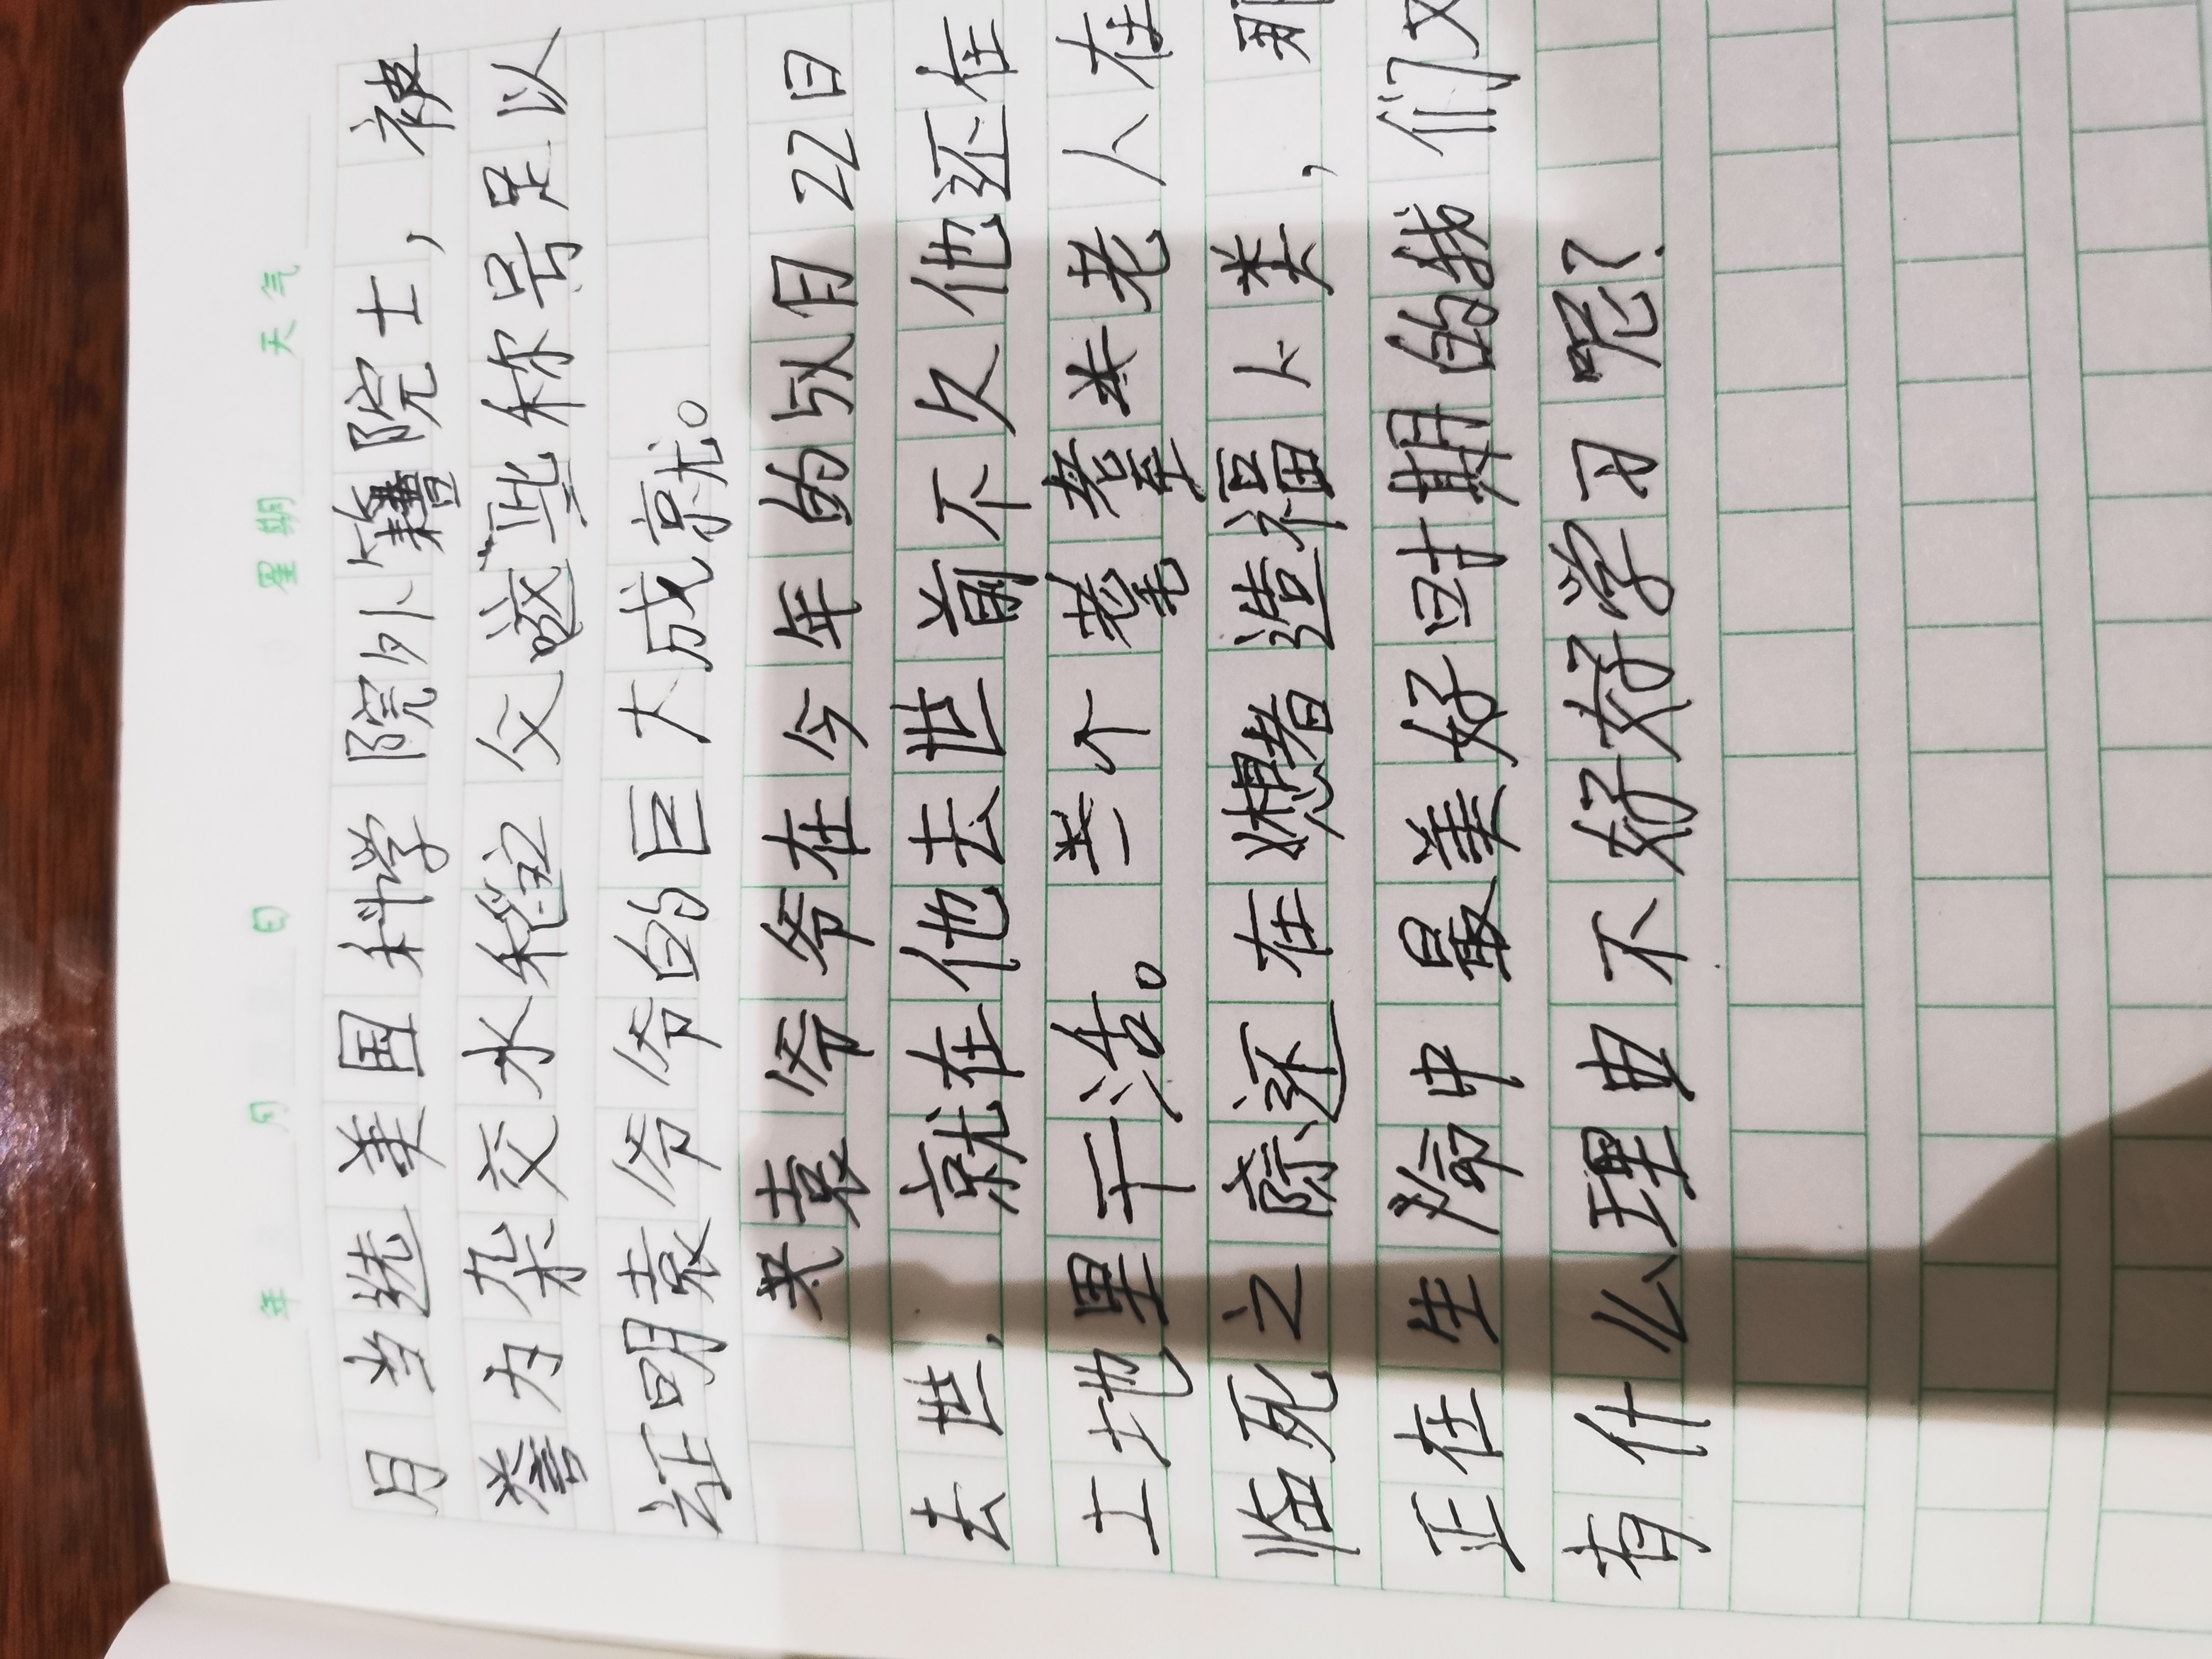 年 月 日 星期 天气
月当选美国科学院外籍院士，被
誉为杂交水稻父这些称号足以
证明袁爷爷的巨大成就。
袁爷爷在今年的月22日
去世，就在他去世前不久他还在
土地里干活。一个耄耋老人在
临死之际还在想着造福人类，那
正在生命中最美好时期的我们又
有什么理由不好好学习呢？